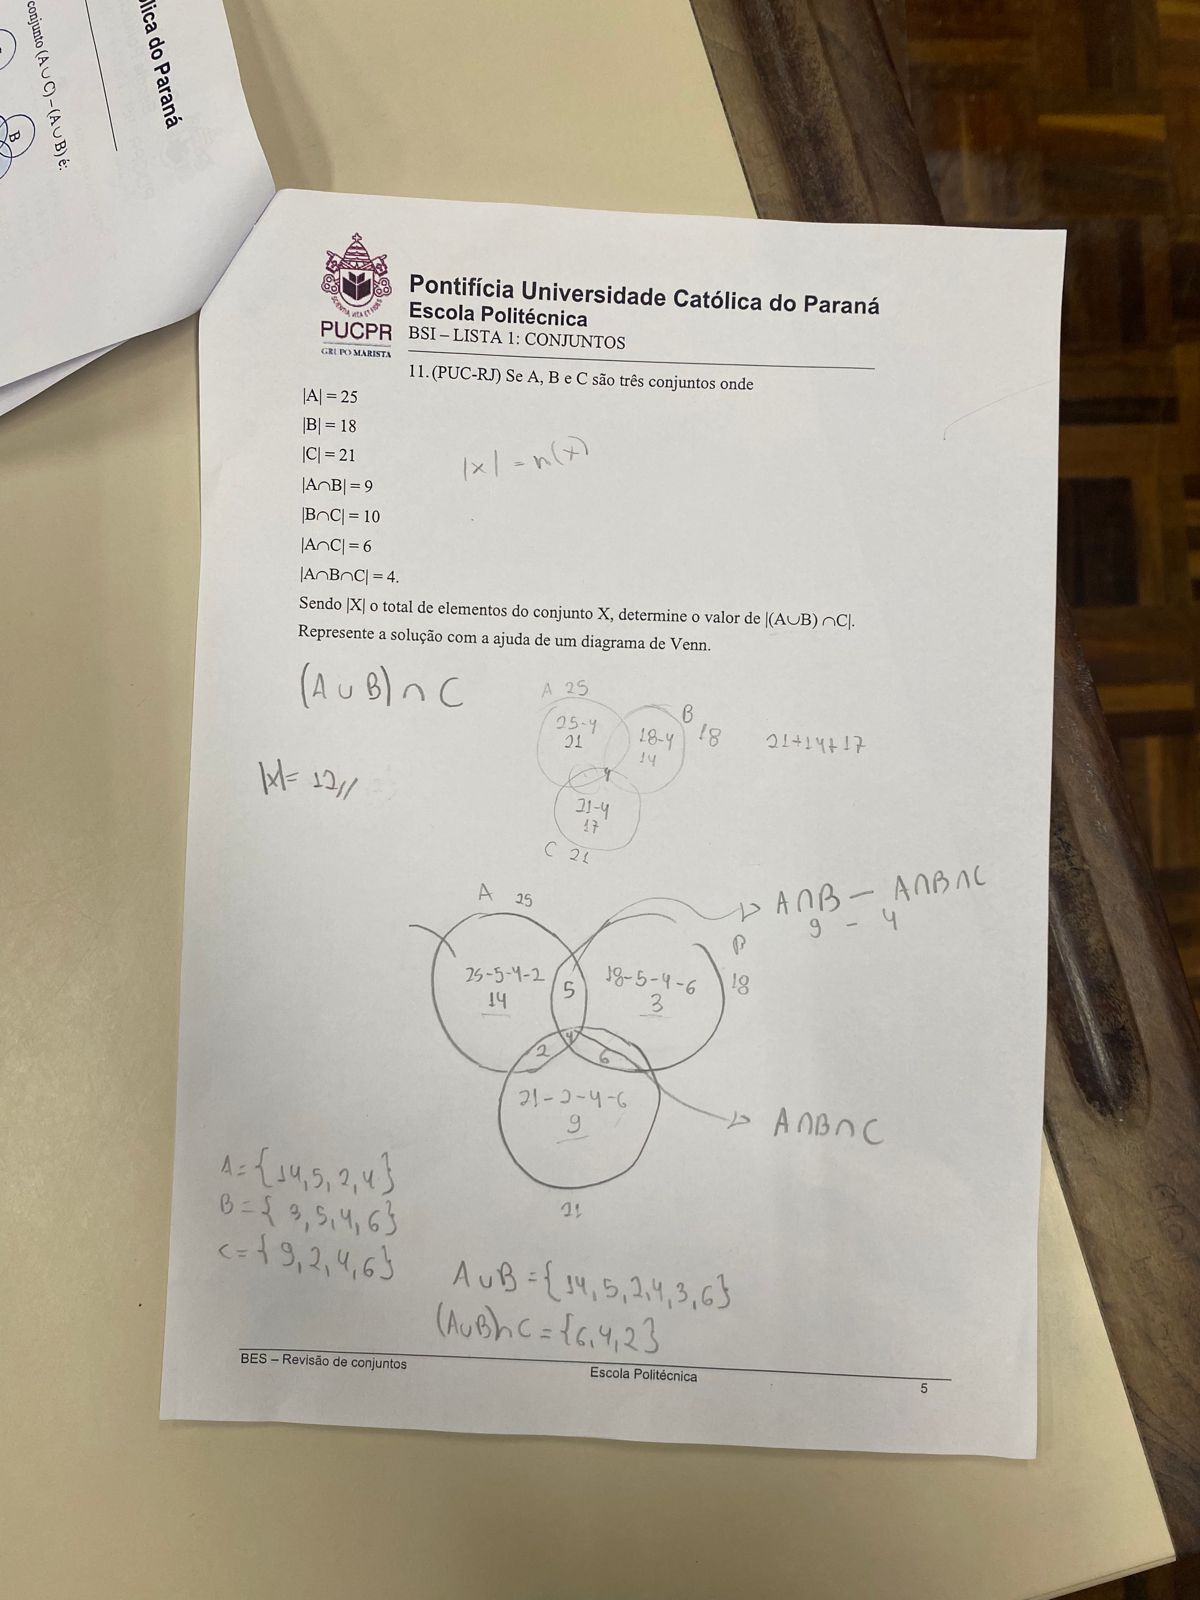 lica do Paraná
conjunto (A∪C) – (A∪B) é:
B
PUCPR
GRUPO MARISTA
Pontifícia Universidade Católica do Paraná
Escola Politécnica
BSI – LISTA 1: CONJUNTOS
11.(PUC-RJ) Se A, B e C são três conjuntos onde
|A| = 25
|B| = 18
|C| = 21
|x| = n(x)
|A∩B| = 9
|B∩C| = 10
|A∩C| = 6
|A∩B∩C| = 4.
Sendo |X| o total de elementos do conjunto X, determine o valor de |(A∪B) ∩C|.
Represente a solução com a ajuda de um diagrama de Venn.
(A ∪ B) ∩ C
A 25
B
18
25-4
21
18-4
14
21+14+17
4
|x| = 12//
21-4
17
C 21
A 25
A∩B – A∩B∩C
9 - 4
B
18
25-5-4-2
14
5
18-5-4-6
3
4
2
6
21-2-4-6
9
A∩B∩C
21
A = {14, 5, 2, 4}
B = { 3, 5, 4, 6}
C = { 9, 2, 4, 6}
A∪B = {14, 5, 2, 4, 3, 6}
(A∪B)∩C = {6, 4, 2}
BES – Revisão de conjuntos
Escola Politécnica
5